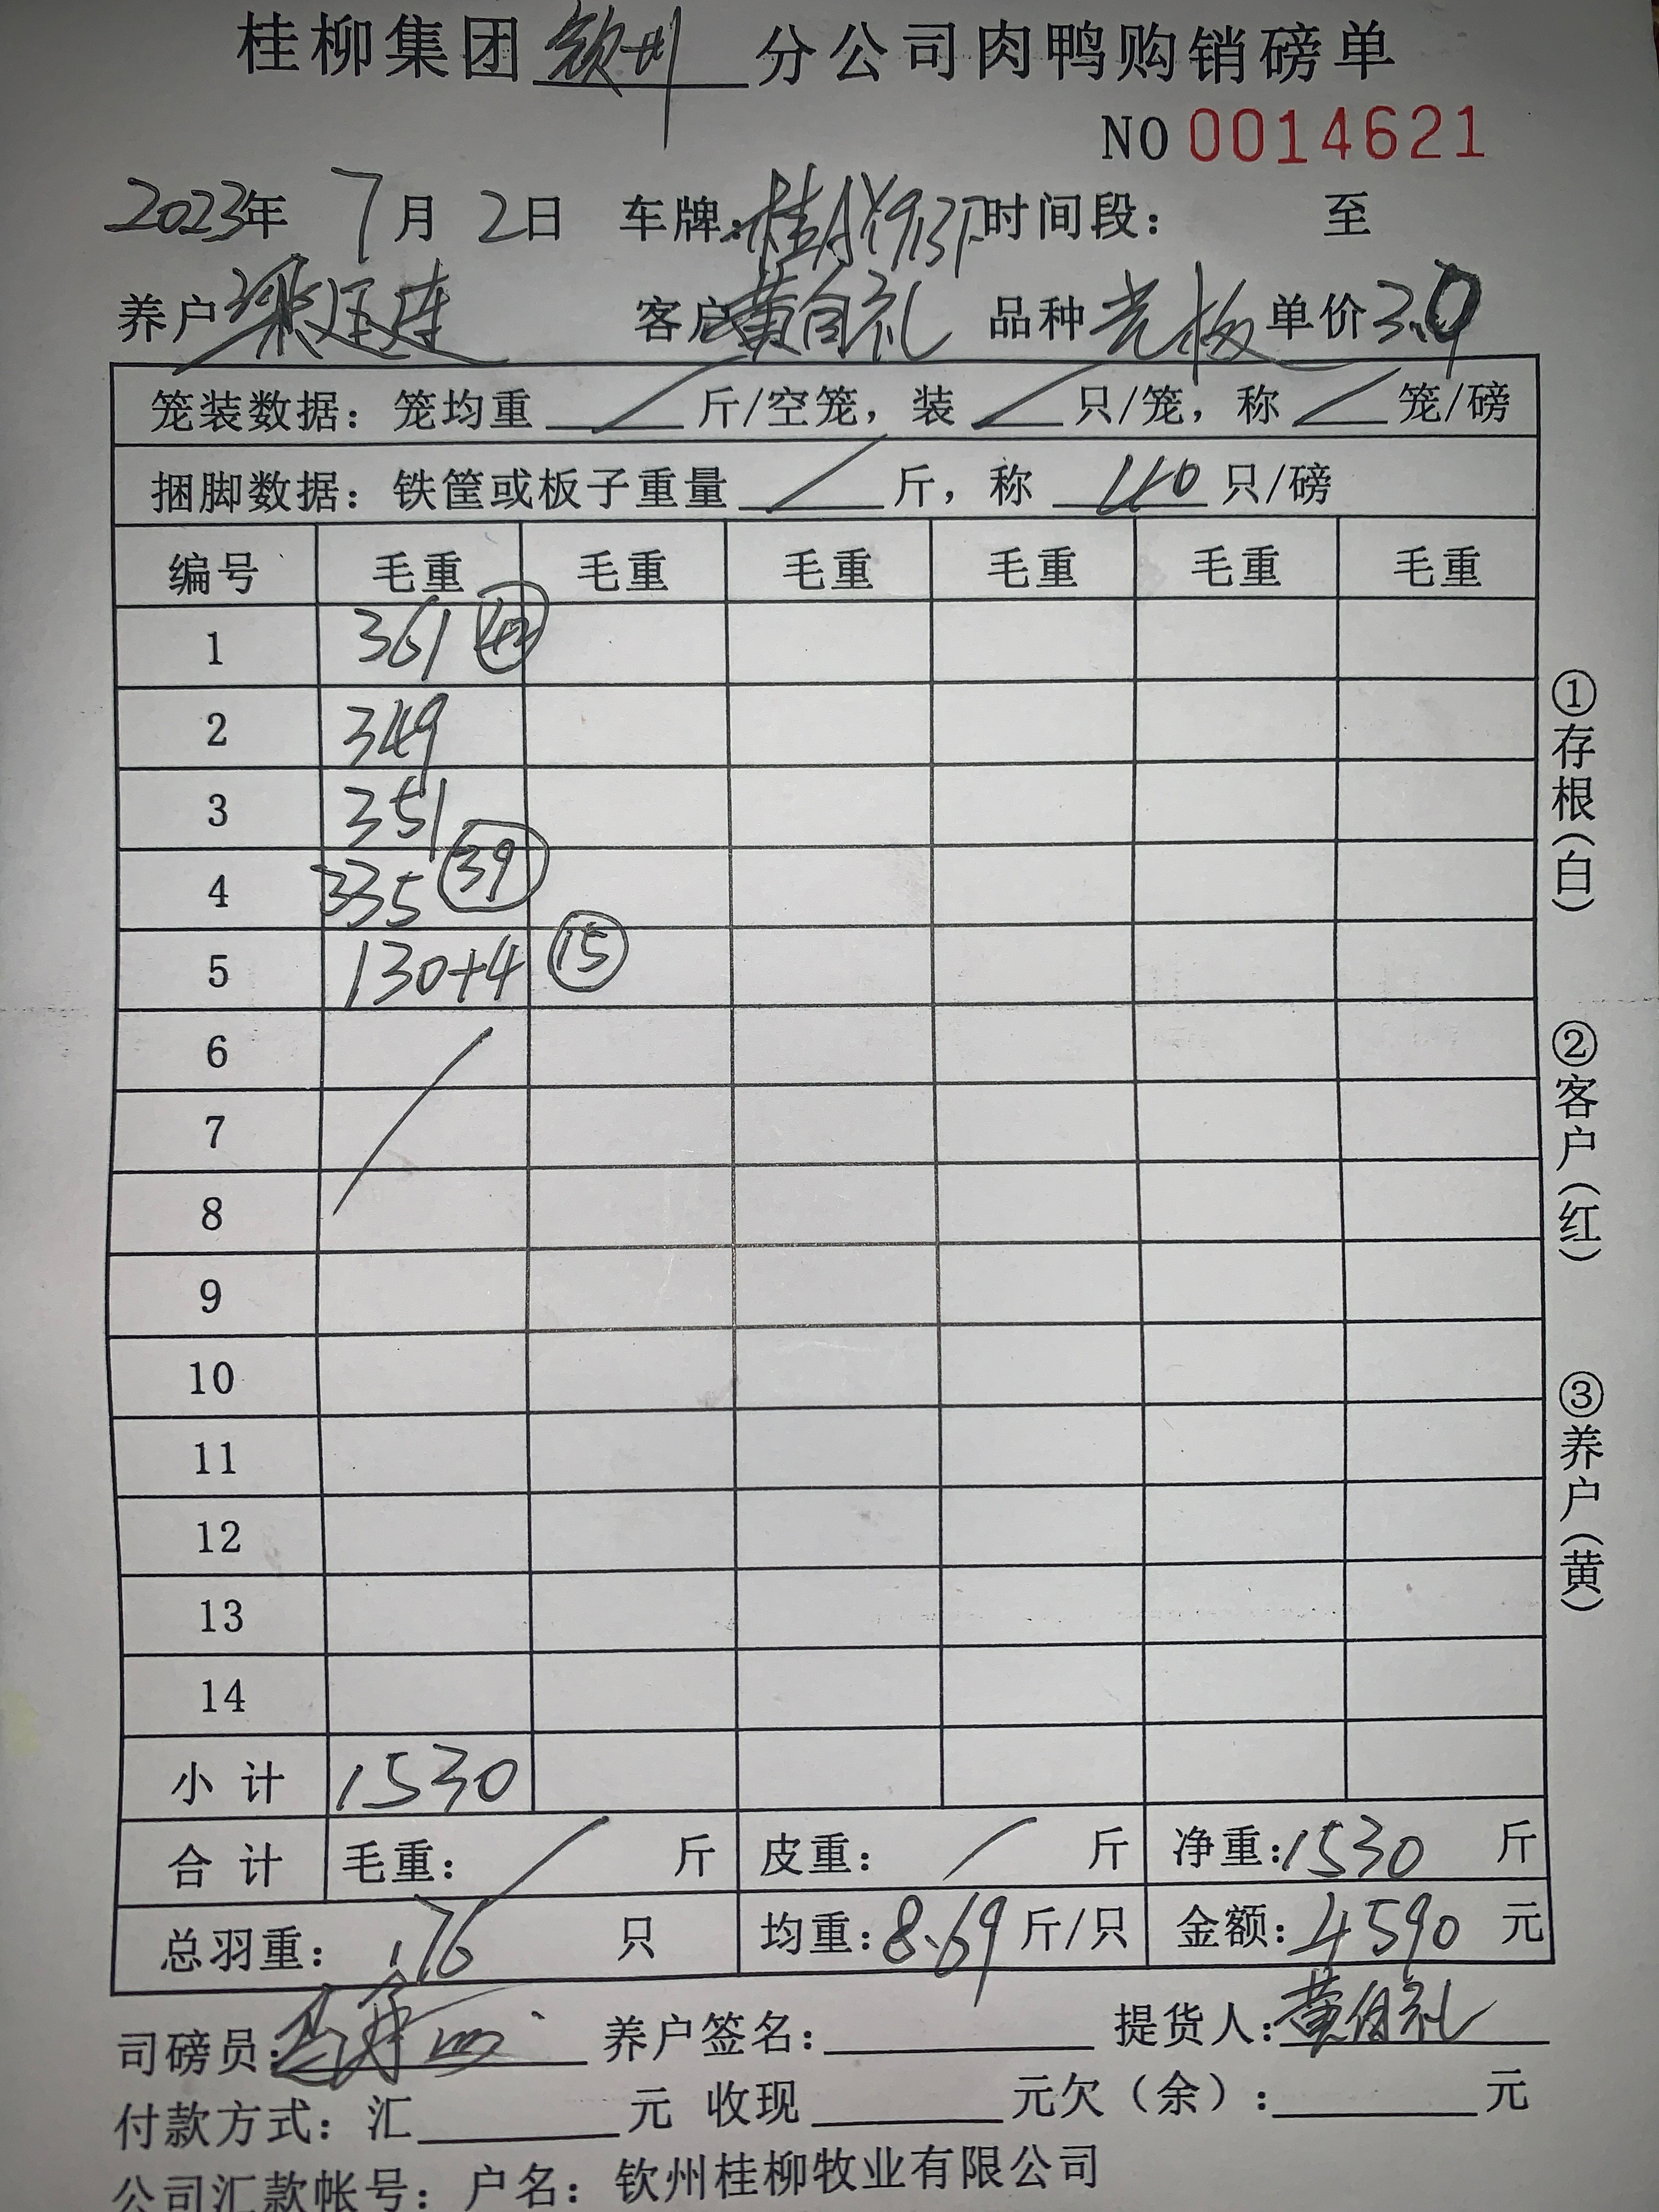 桂柳集团钦州分公司肉鸭购销磅单
NO 0014621
2023年 7月 2日 车牌: 时间段: 至
养户 梁廷连 客户 黄自礼 品种 光板 单价 3.0
笼装数据: 笼均重 / 斤/空笼, 装 / 只/笼, 称 / 笼/磅
捆脚数据: 铁筐或板子重量 / 斤, 称 40 只/磅
编号 毛重 毛重 毛重 毛重 毛重 毛重
1 361 42
2 349
3 351
4 335 39
5 130+4 15
6
7
8
9
10
11
12
13
14
小计 1530
合计 毛重: / 斤 皮重: / 斤 净重: 1530 斤
总羽重: 176 只 均重: 8.69 斤/只 金额: 4590 元
司磅员: 养户签名: 提货人: 黄自礼
付款方式: 汇 元 收现 元欠(余): 元
公司汇款帐号: 户名: 钦州桂柳牧业有限公司
①存根(白)
②客户(红)
③养户(黄)